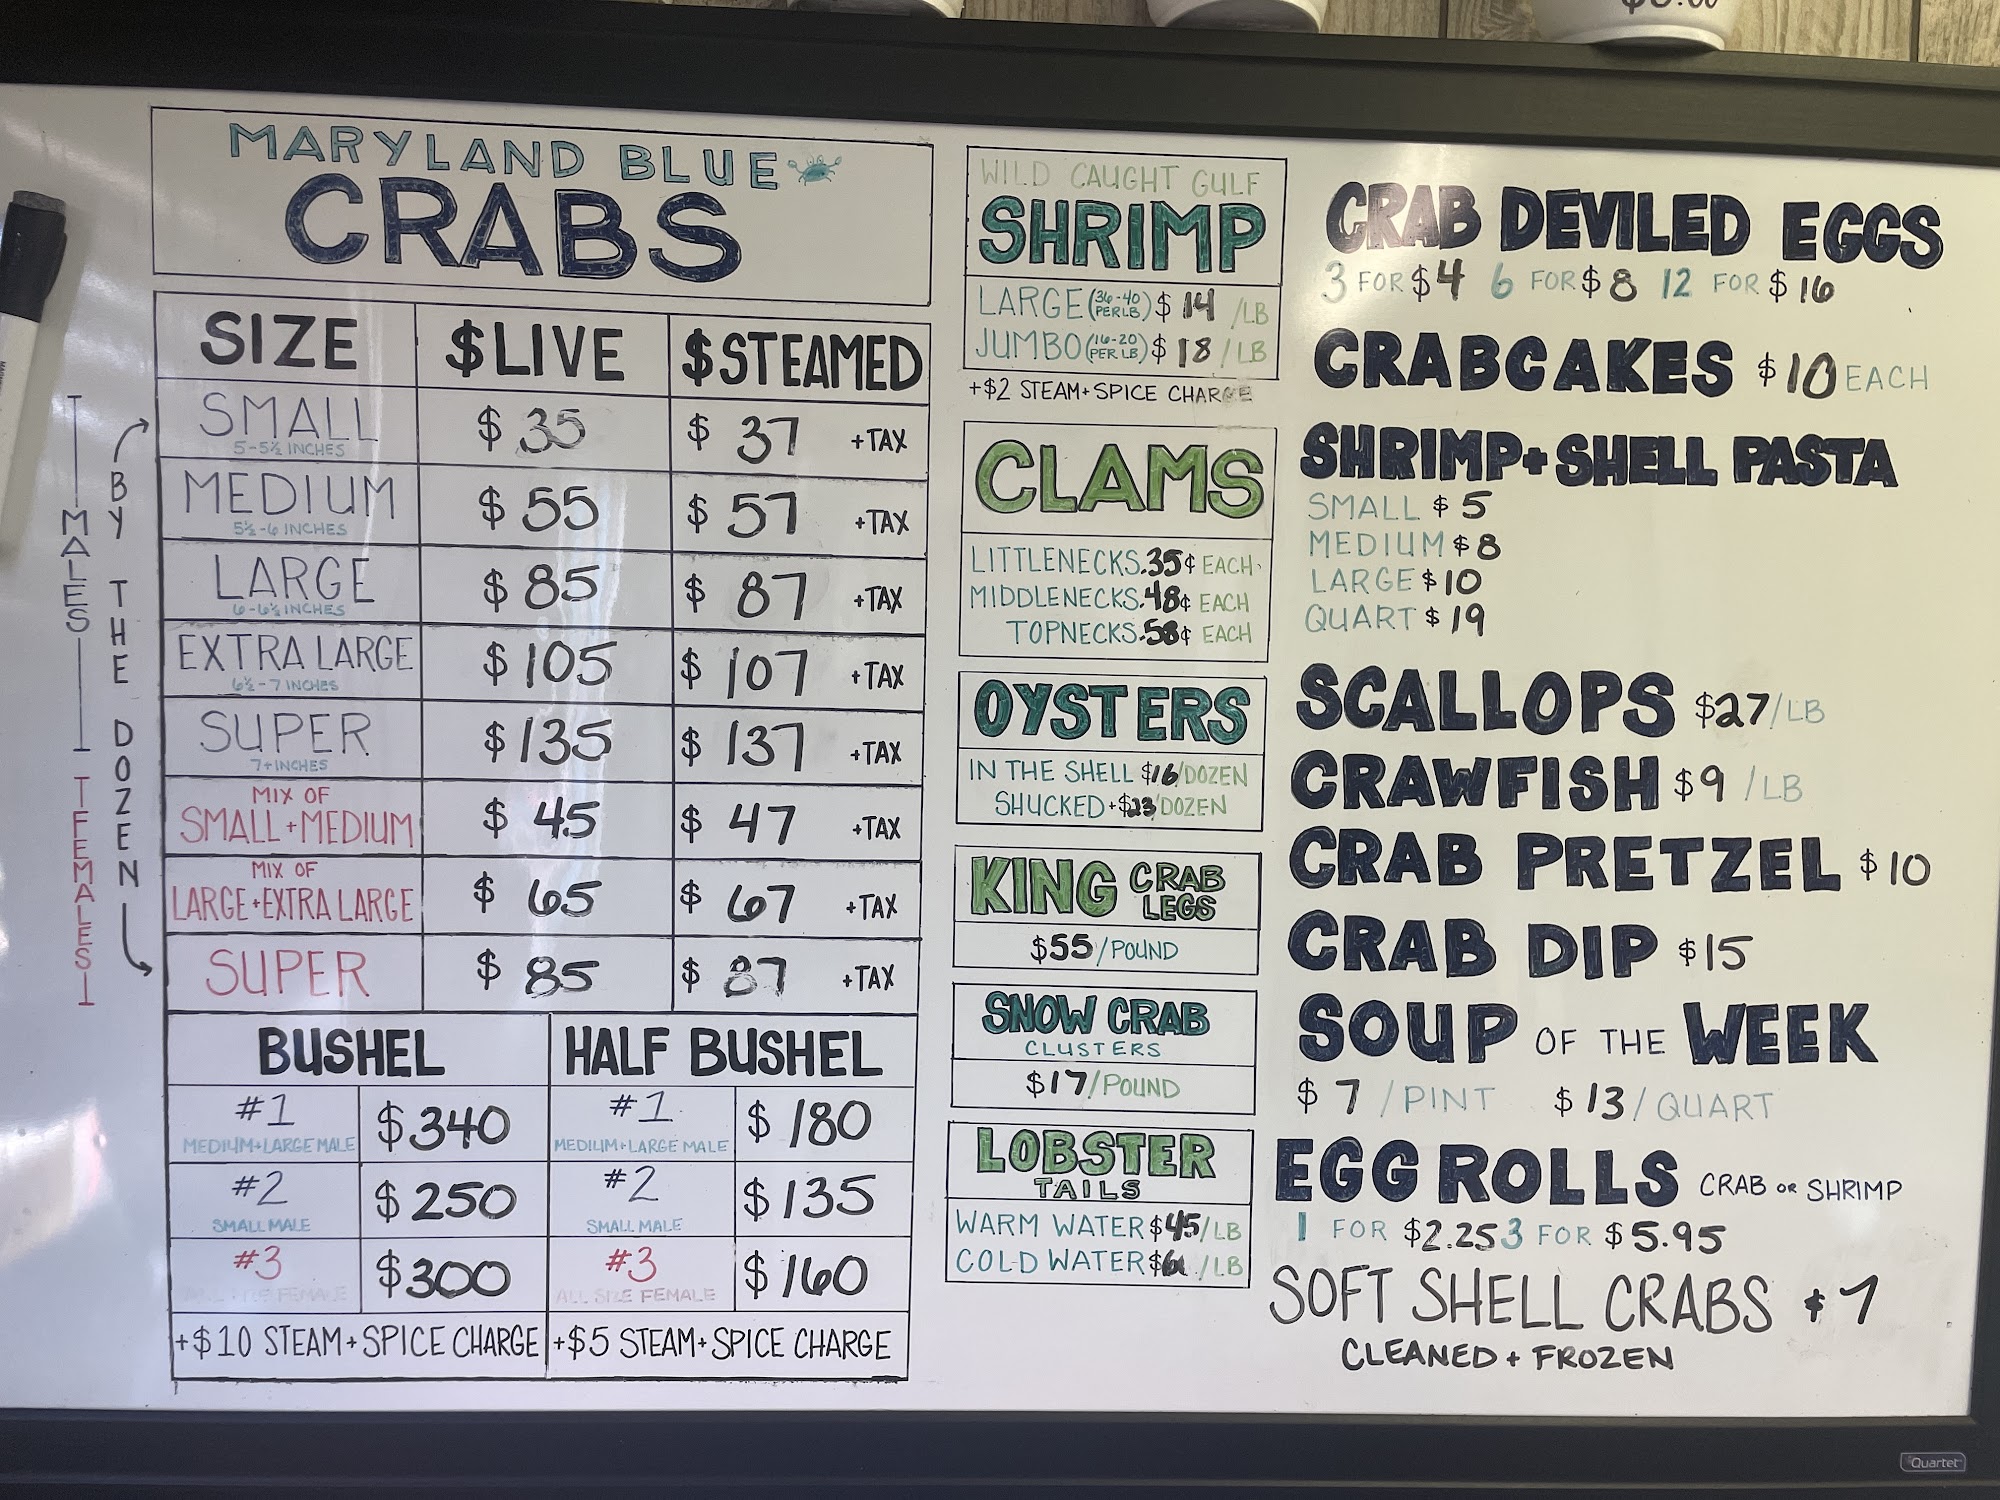 $0.00
MARYLAND BLUE
CRABS
SIZE $LIVE $STEAMED
SMALL $ 35 $ 37 +TAX
5-5½ INCHES
MEDIUM $ 55 $ 57 +TAX
5½-6 INCHES
LARGE $ 85 $ 87 +TAX
6-6½ INCHES
EXTRA LARGE $ 105 $ 107 +TAX
6½-7 INCHES
SUPER $ 135 $ 137 +TAX
7+ INCHES
MIX OF
SMALL + MEDIUM $ 45 $ 47 +TAX
MIX OF
LARGE + EXTRA LARGE $ 65 $ 67 +TAX
SUPER $ 85 $ 87 +TAX
MALES
FEMALES
BY THE DOZEN
BUSHEL HALF BUSHEL
#1 $340 #1 $ 180
MEDIUM+LARGE MALE MEDIUM+LARGE MALE
#2 $ 250 #2 $ 135
SMALL MALE SMALL MALE
#3 $300 #3 $ 160
ALL SIZE FEMALE ALL SIZE FEMALE
+$10 STEAM+SPICE CHARGE +$5 STEAM+SPICE CHARGE
WILD CAUGHT GULF
SHRIMP
LARGE (36-40 PER LB) $ 14 /LB
JUMBO (16-20 PER LB) $ 18 /LB
+$2 STEAM+SPICE CHARGE
CLAMS
LITTLENECKS .35¢ EACH
MIDDLENECKS .48¢ EACH
TOPNECKS .58¢ EACH
OYSTERS
IN THE SHELL $16/DOZEN
SHUCKED +$23/DOZEN
KING CRAB LEGS
$55/POUND
SNOW CRAB
CLUSTERS
$17/POUND
LOBSTER
TAILS
WARM WATER $45/LB
COLD WATER /LB
CRAB DEVILED EGGS
3 FOR $4 6 FOR $8 12 FOR $16
CRABCAKES $10 EACH
SHRIMP+SHELL PASTA
SMALL $ 5
MEDIUM $ 8
LARGE $ 10
QUART $ 19
SCALLOPS $27/LB
CRAWFISH $9 /LB
CRAB PRETZEL $10
CRAB DIP $15
SOUP OF THE WEEK
$ 7 /PINT $ 13/QUART
EGG ROLLS CRAB OR SHRIMP
1 FOR $2.25 3 FOR $5.95
SOFT SHELL CRABS $7
CLEANED + FROZEN
Quartet